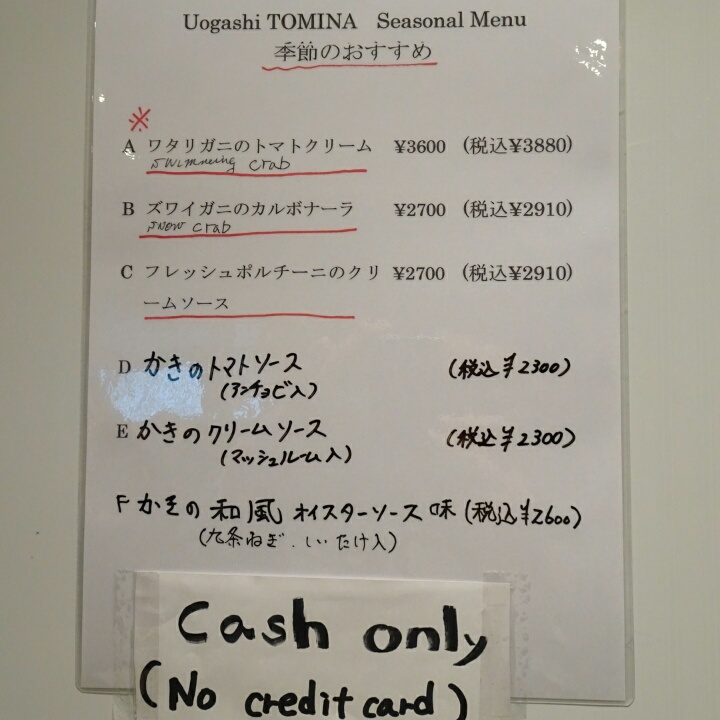 Uogashi TOMINA Seasonal Menu
季節のおすすめ
※
A ワタリガニのトマトクリーム ¥3600 (税込¥3880)
swimming crab
B ズワイガニのカルボナーラ ¥2700 (税込¥2910)
snow crab
C フレッシュポルチーニのクリ ¥2700 (税込¥2910)
ームソース
D かきのトマトソース (税込¥2300)
(アンチョビ入)
E かきのクリームソース (税込¥2300)
(マッシュルーム入)
F かきの和風オイスターソース味 (税込¥2600)
(九条ねぎ.しいたけ入)
Cash only
(No credit card)